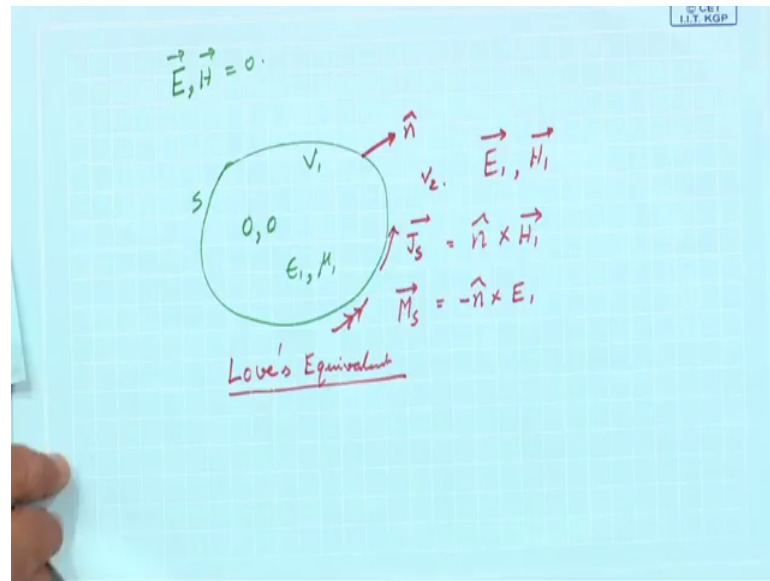 © CET
I.I.T. KGP
E⃗, H⃗ = 0.
n̂
V₁
V₂. E⃗₁, H⃗₁
S
0, 0
J⃗ₛ = n̂ × H⃗₁
ϵ₁, μ₁
M⃗ₛ = -n̂ × E₁
Love's Equivalent